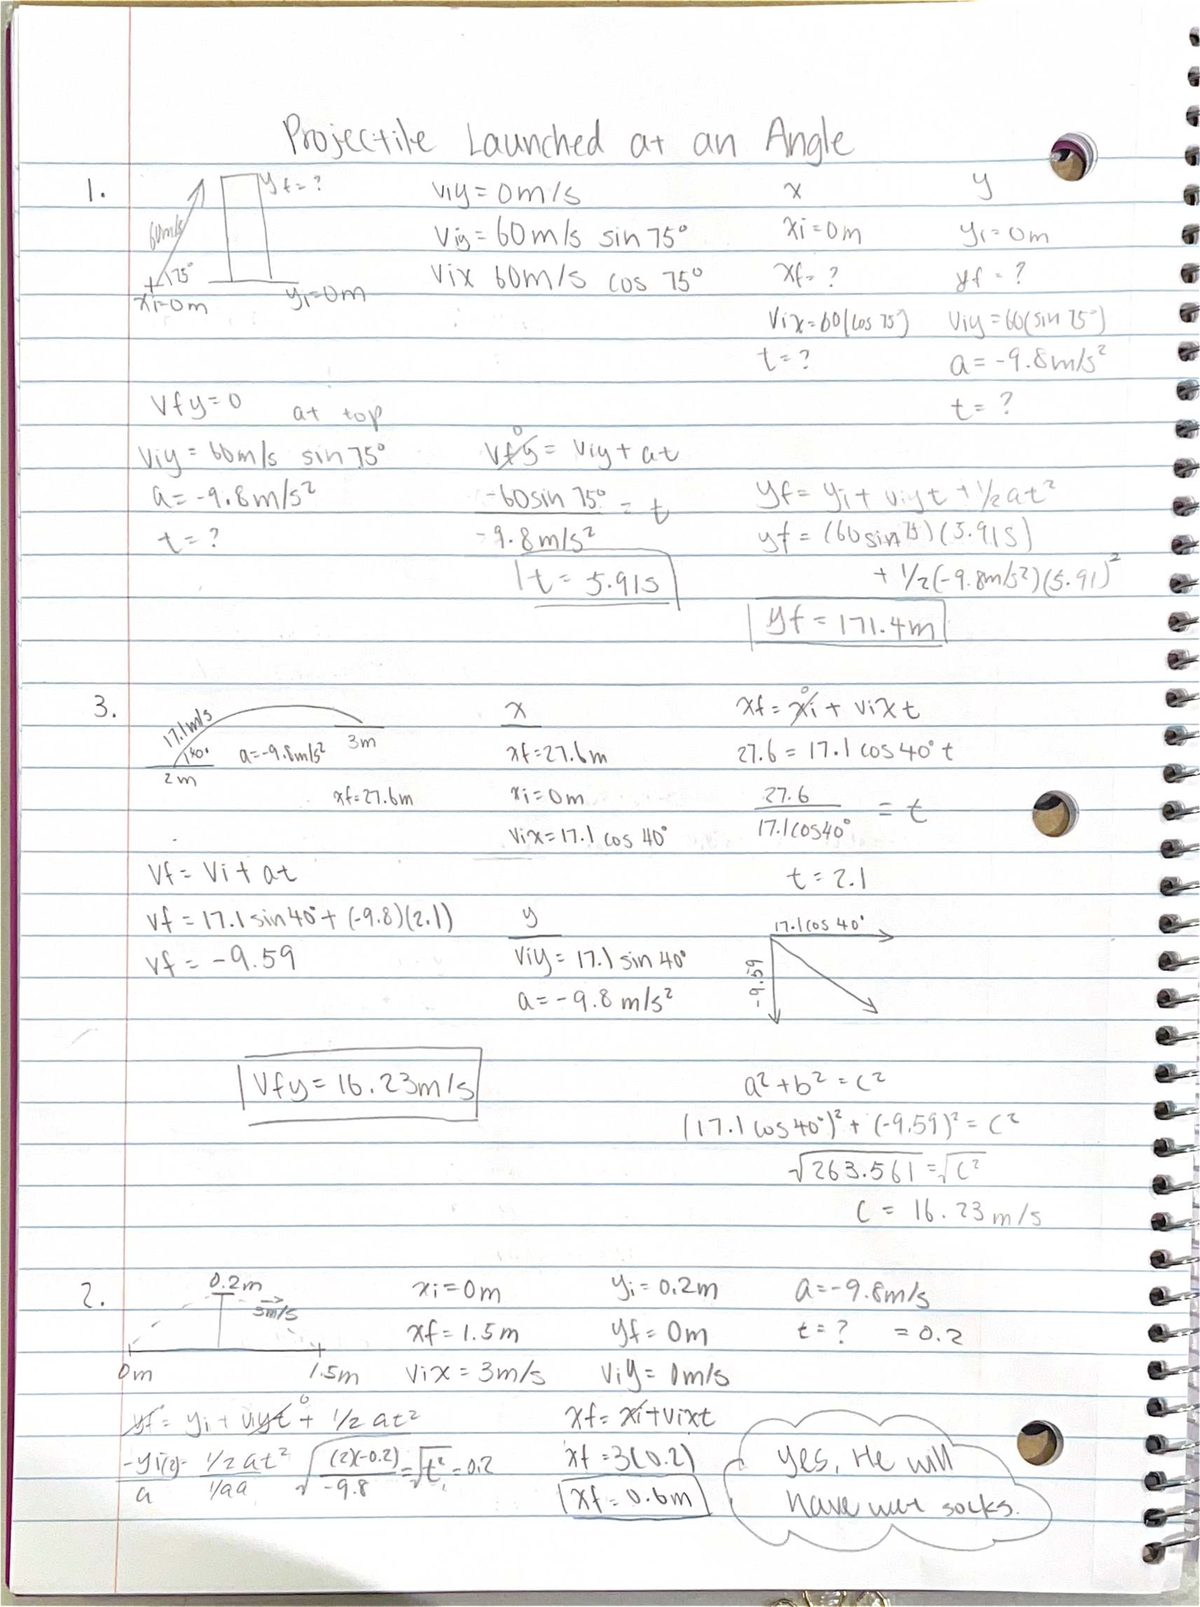 Projectile Launched at an Angle
1.
yf=?
60m/s
75°
xi=0m
yi=0m
viy = 0m/s
viy = 60m/s sin 75°
vix 60m/s cos 75°
x
xi=0m
xf=?
vix=60(cos 75°)
t=?
y
yi=0m
yf=?
viy=60(sin 75°)
a=-9.8m/s²
t=?
vfy=0 at top
viy = 60m/s sin 75°
a=-9.8m/s²
t=?
0
vfy = viy + at
-60sin 75° = t
-9.8m/s²
t = 5.91s
yf = yi + viyt + 1/2at²
yf = (60sin75)(5.91s)
+ 1/2(-9.8m/s²)(5.91)²
yf = 171.4m
3.
17.1m/s
40°
a=-9.8m/s²
3m
2m
xf=27.6m
x
xf=27.6m
xi=0m
vix=17.1 cos 40°
0
xf = xi + vixt
27.6 = 17.1 cos 40° t
27.6
17.1cos40° = t
t = 2.1
vf = vi + at
vf = 17.1 sin 40° + (-9.8)(2.1)
vf = -9.59
y
viy = 17.1 sin 40°
a = -9.8 m/s²
17.1cos 40°
-9.59
vfy = 16.23m/s
a² + b² = c²
(17.1cos40°)² + (-9.59)² = c²
√263.561 = √c²
c = 16.23m/s
2.
0.2m
3m/s
0m
1.5m
xi=0m
xf=1.5m
vix=3m/s
yi=0.2m
yf=0m
viy=0m/s
a=-9.8m/s
t=? = 0.2
0
yf = yi + viyt + 1/2 at²
1/2 at²
√(2)(-0.2) = √t² = 0.2
-9.8
a
xf = xi+vixt
xf = 3(0.2)
xf = 0.6m
yes, He will
have wet socks.